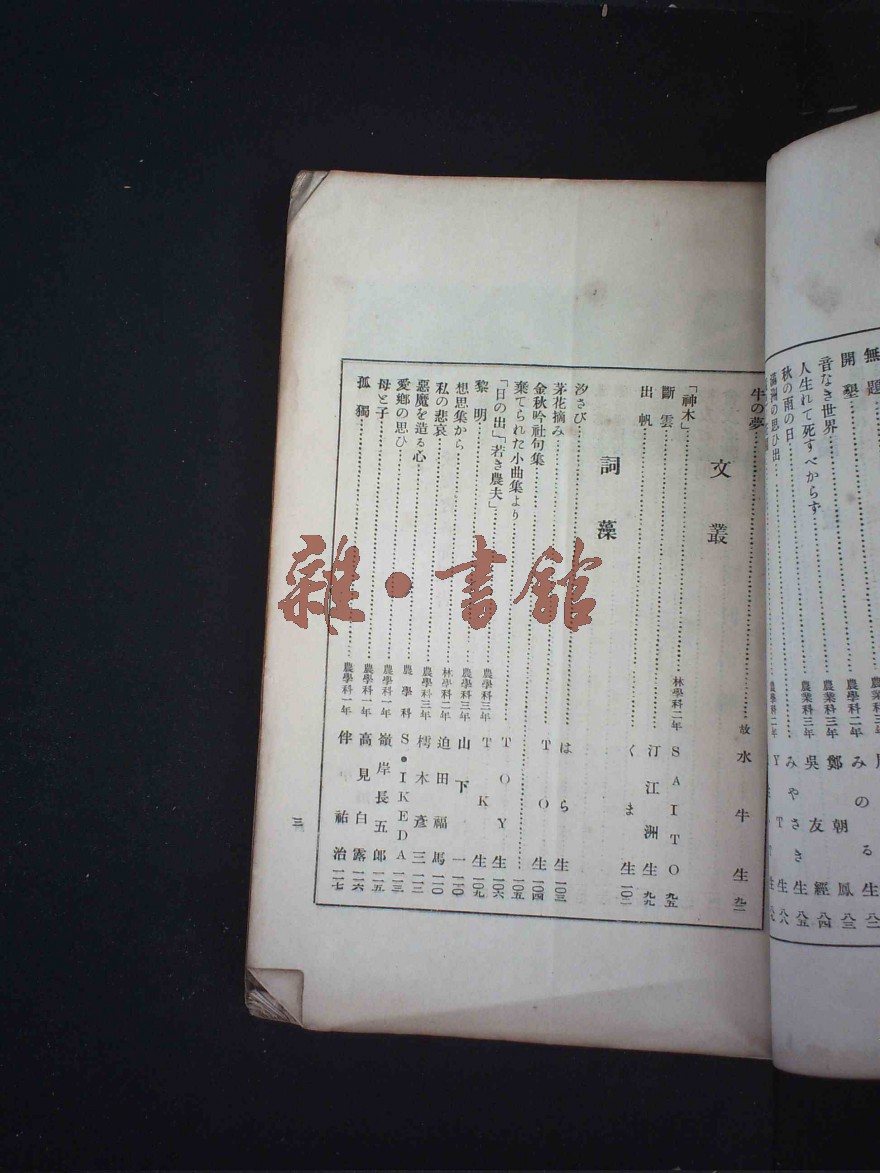 無題
開墾
農學科三年
みのる生 八二
音なき世界
農業科三年 鄭朝鳳 八三
人生れて死すべからず
農業科三年 吳友經 八四
秋の雨の日
みやさき生 八五
滿洲の思ひ出
農學科二年 Y T 生 八八
牛の夢 放水牛生 九二
文叢
「神木」 林學科二年 SAITO 九五
斷雲 汀江洲生 九九
出帆 くま生 一〇二
詞藻
汐さび はら生 一〇三
茅花摘み T O 生 一〇四
金秋吟社句集 一〇五
棄てられた小曲集より T O Y 生 一〇六
「日の出」「若き農夫」 農學科三年 T K 生 一〇九
黎明 農學科三年 山下一 一一〇
想思集から 林學科二年 迫田福馬 一一〇
私の悲哀 農學科三年 樗木彥三 一一二
惡魔を造る心 農學科 S・IKEDA 一一三
愛鄕の思ひ 農學科一年 嶺岸長五郎 一一五
母と子 農學科一年 高見白露 一一六
孤獨 農學科一年 伴祐治 一一七
三
雜・書館